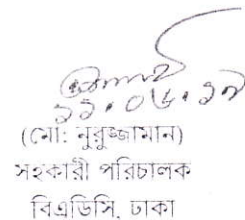 ১১.০৬.১৭
(মো: নুরুজ্জামান)
সহকারী পরিচালক
বিএডিসি, ঢাকা